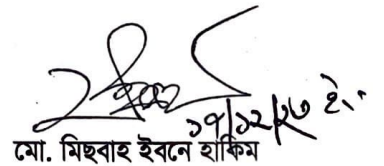 ১৭/১২/২৩ ইং
মো. মিছবাহ ইবনে হাকিম